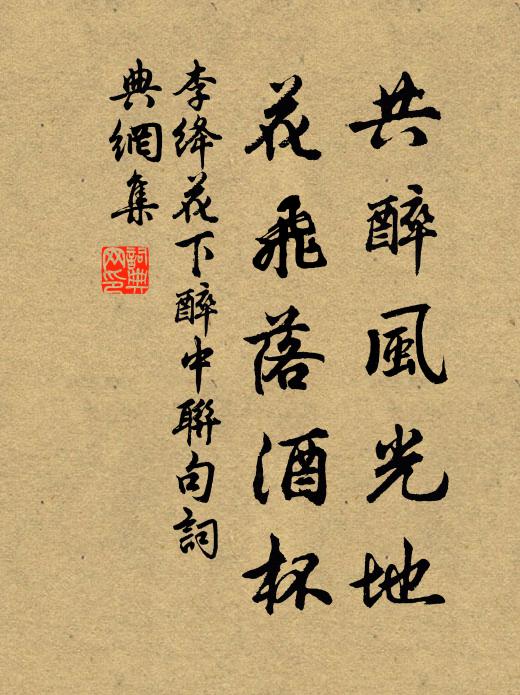 共醉風光地
花飛落酒杯
李絳花下醉中聯句詞
典網集
詞典
网印